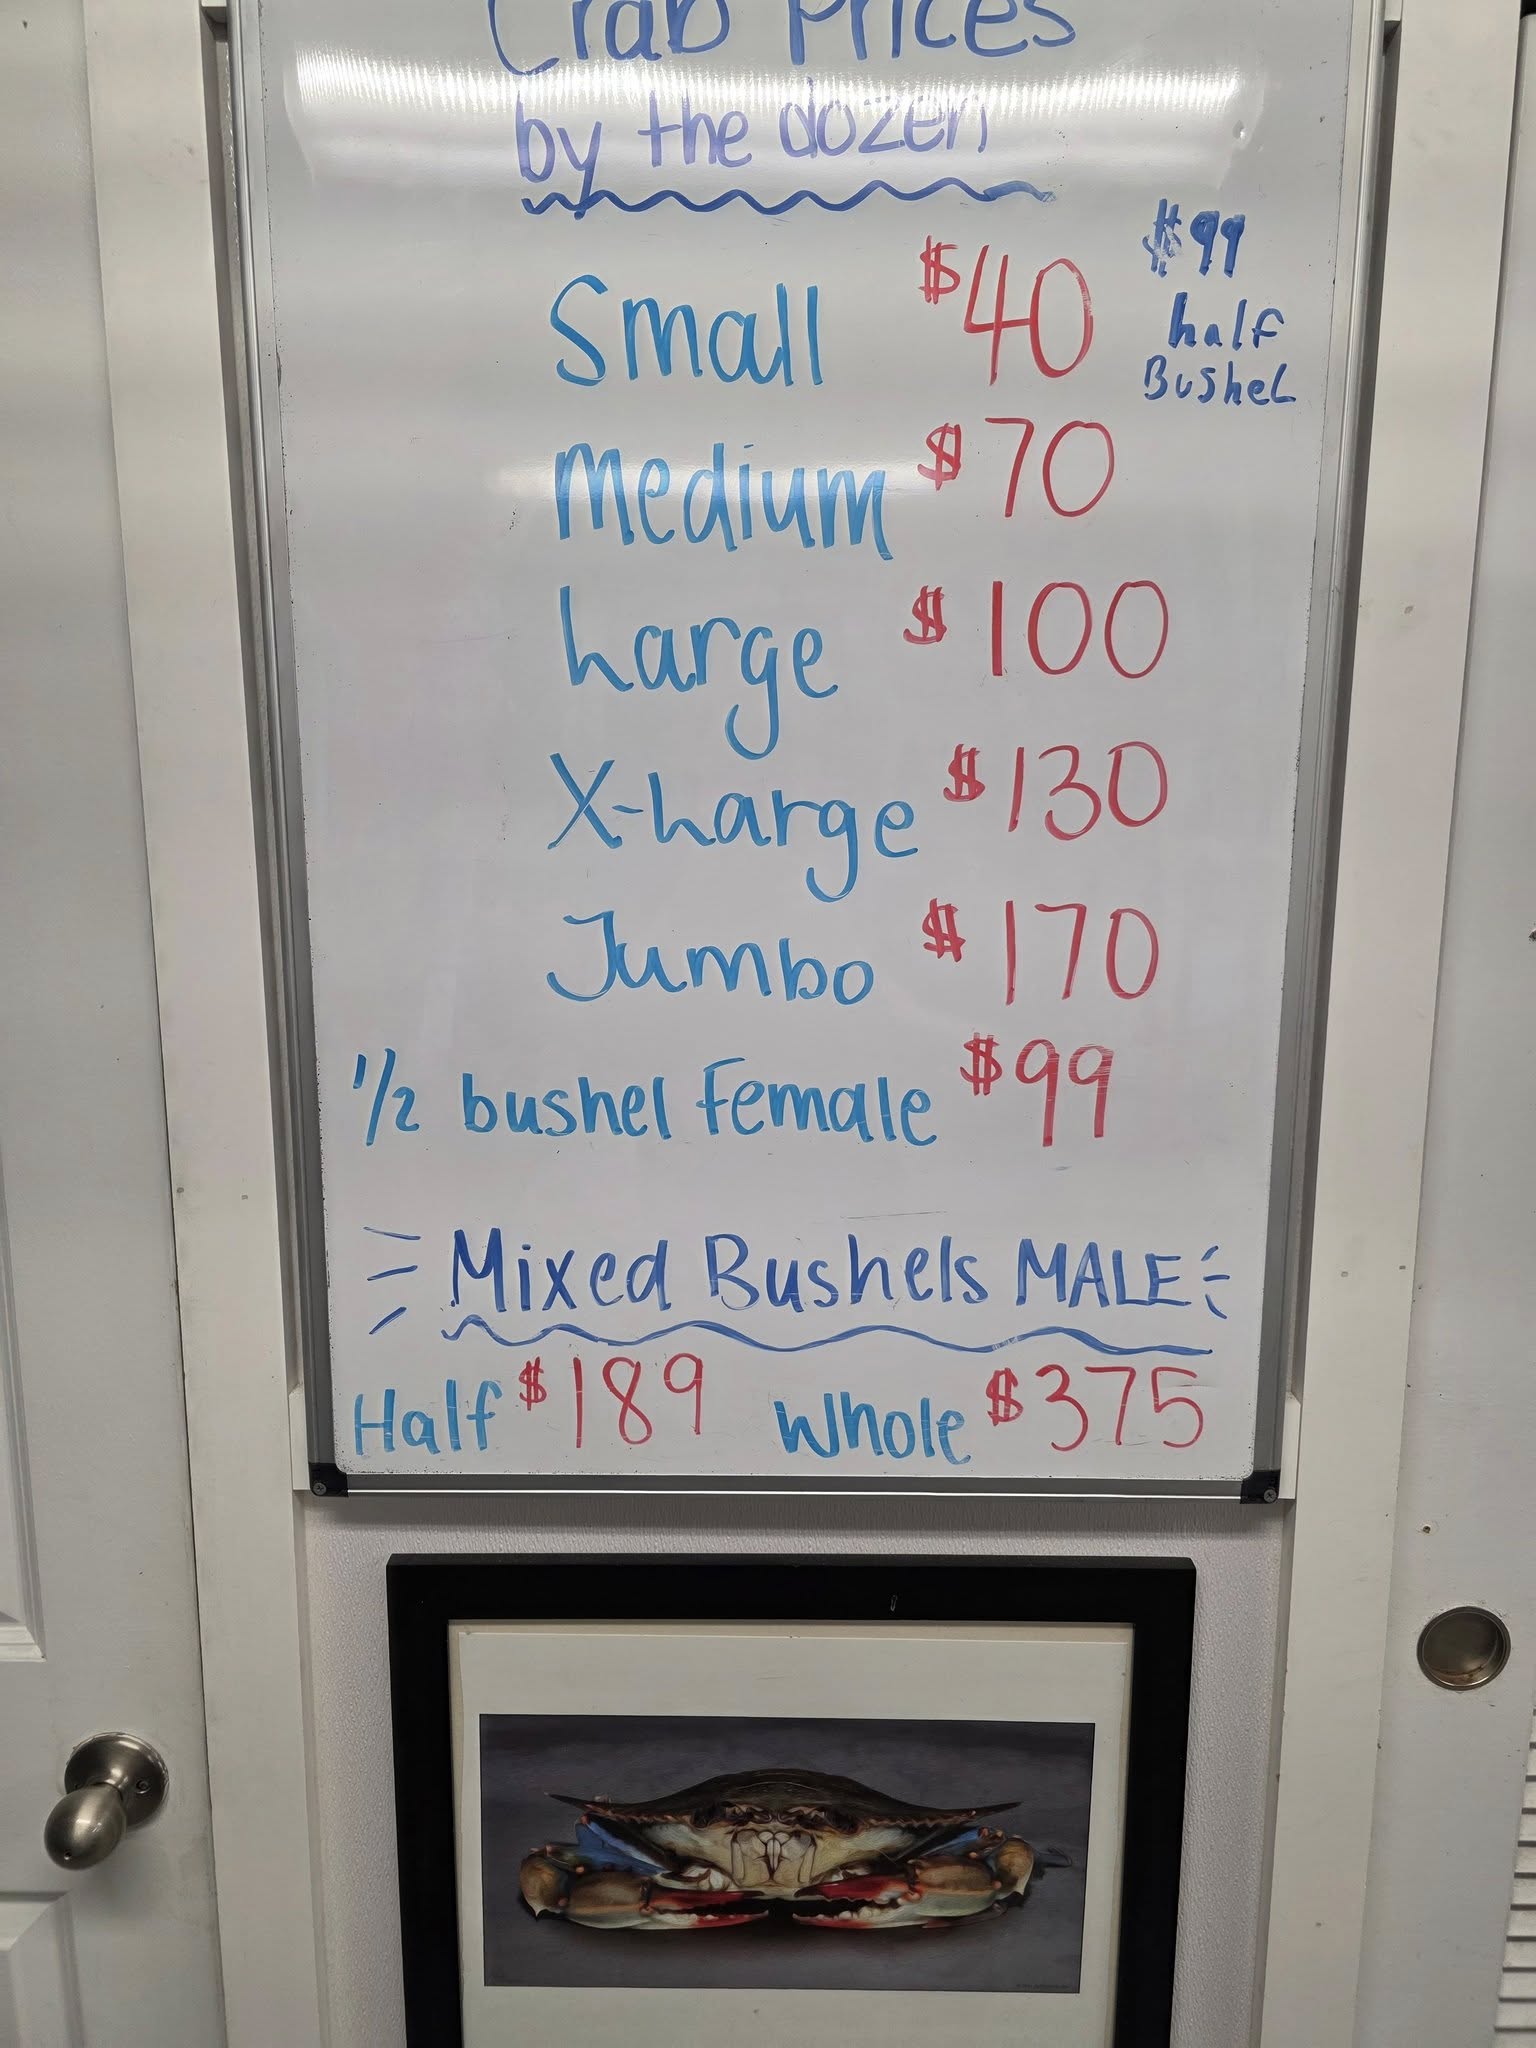 Crab Prices
by the dozen
Small $40
$99
half
Bushel
Medium $70
Large $100
X-Large $130
Jumbo $170
1/2 bushel Female $99
Mixed Bushels MALE
Half $189 Whole $375